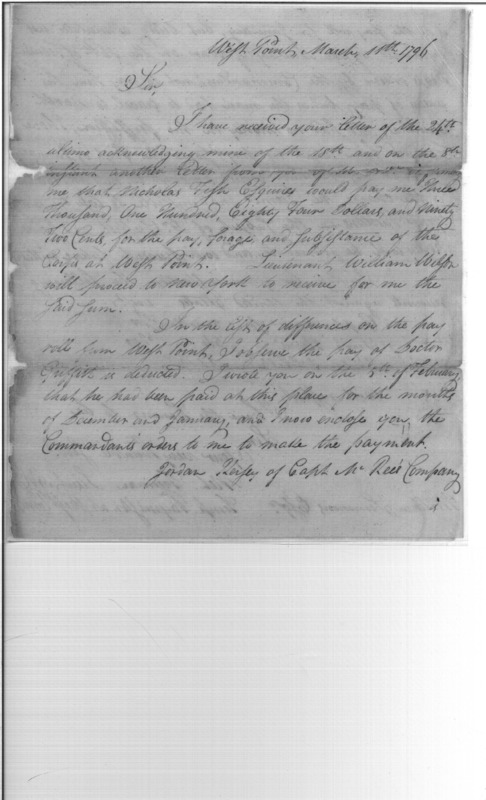 West Point, March, 11th. 1796
Sir
I have received your letter of the 24th.
ultimo acknowledging mine of the 15th and on the 8th
instant another letter from you
me that Nicholas Fish Esquire would pay me Three
Thousand, One Hundred, Eighty Four Dollars, and Ninety
Two Cents, for the pay, forage and subsistance of the
Corps at West Point. Lieutenant William Wilson
will proceed to New York to receive for me the
said sum.
In the list of differences on the pay
roll from West Point, I observe the pay of Doctor
Griffith is deducted. I wrote you on the 5th. of February
that he had been paid at this place for the months
of December and January, and I now enclose you, the
Commandants orders to me to make the payment.
Jordan of Capt. Mc Rees Company